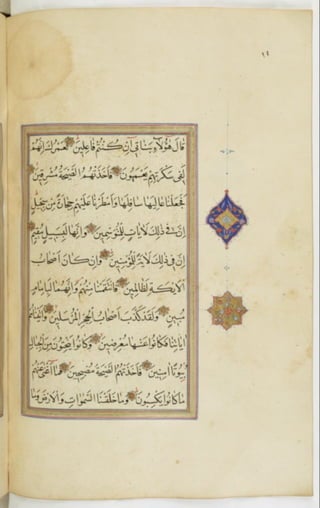 ١٤
قَالَ هٰؤُلَاءِ بَنَاتِي اِنْ كُنْتُمْ فَاعِلِينَ لَعَمْرُكَ اِنَّهُمْ
لَفِي سَكْرَتِهِمْ يَعْمَهُونَ فَاَخَذَتْهُمُ الصَّيْحَةُ مُشْرِقِينَ
فَجَعَلْنَا عَالِيَهَا سَافِلَهَا وَاَمْطَرْنَا عَلَيْهِمْ حِجَارَةً مِنْ سِجِّيلٍ
اِنَّ فِي ذٰلِكَ لَاٰيَاتٍ لِلْمُتَوَسِّمِينَ وَاِنَّهَا لَبِسَبِيلٍ مُقِيمٍ
اِنَّ فِي ذٰلِكَ لَاٰيَةً لِلْمُؤْمِنِينَ وَاِنْ كَانَ اَصْحَابُ
الْاَيْكَةِ لَظَالِمِينَ فَانْتَقَمْنَا مِنْهُمْ وَاِنَّهُمَا لَبِاِمَامٍ
مُبِينٍ وَلَقَدْ كَذَّبَ اَصْحَابُ الْحِجْرِ الْمُرْسَلِينَ وَاٰتَيْنَاهُمْ
اٰيَاتِنَا فَكَانُوا عَنْهَا مُعْرِضِينَ وَكَانُوا يَنْحِتُونَ مِنَ الْجِبَالِ
بُيُوتًا اٰمِنِينَ فَاَخَذَتْهُمُ الصَّيْحَةُ مُصْبِحِينَ فَمَا اَغْنٰى عَنْهُمْ
مَا كَانُوا يَكْسِبُونَ وَمَا خَلَقْنَا السَّمٰوَاتِ وَالْاَرْضَ وَمَا